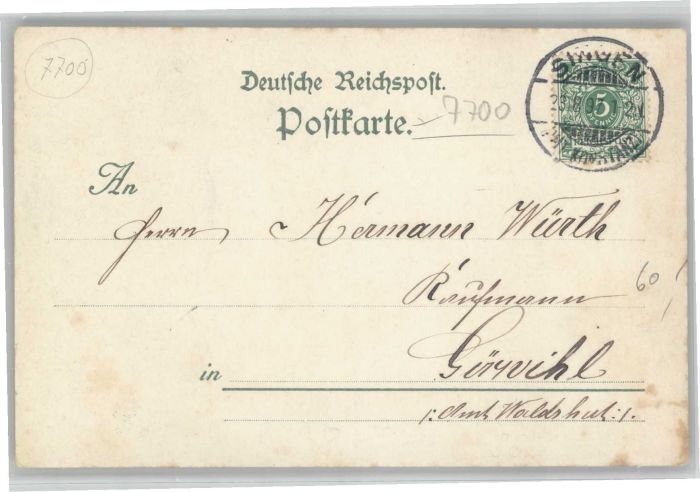 7700
Deutsche Reichspost.
Postkarte. 7700
SINGEN
5
PFENNIG
KONSTANZ
An
Herrn Hermann Würth
Kaufmann
60
in Görwihl
/: Amt Waldshut :/.